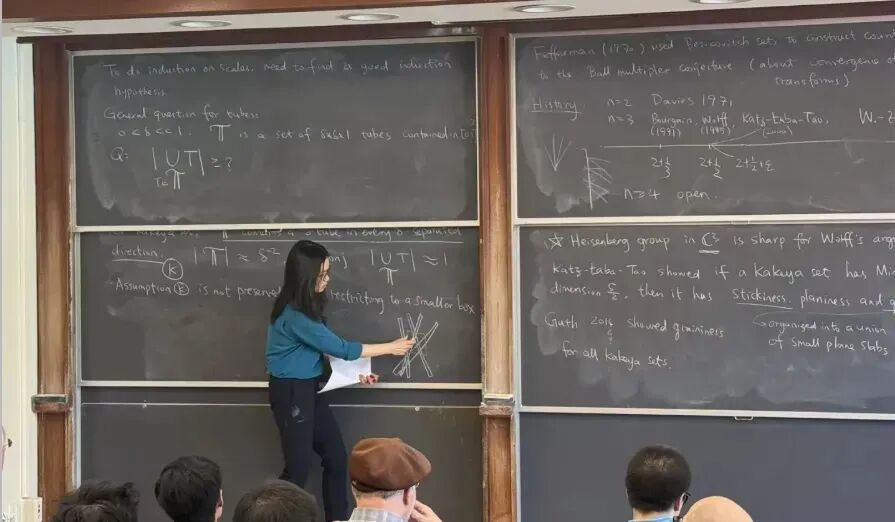 To do induction on scales, need to find a good induction
hypothesis.
General question for tubes:
0 < δ << 1. 𝕋 is a set of δxδx1 tubes contained in
Q: | ∪ T | ≥ ?
T∈𝕋
𝕋 contains a δ tube in every δ separated
direction. |𝕋| ≈ δ⁻² | ∪ T | ≈ 1
𝕋
(K)
- Assumption (K) is not restricting to a smaller box
Fefferman (1970) used Besicovitch sets to construct
to the Ball multiplier conjecture (about convergence of
transforms)
History n=2 Davies 1971
n=3 Bourgain, Wolff, Katz-Łaba-Tao, W.-
(1991) (1995) (2000)
2+1/3 2+1/2 2+1/2+ε
n≥4 open.
☆ Heisenberg group in ℂ³ is sharp for Wolff's
Katz-Łaba-Tao showed if a Kakeya set has
dimension 5/2, then it has stickiness, planiness and
Guth 2016 showed graininess organized into a union
for all Kakeya sets. of small plane slabs